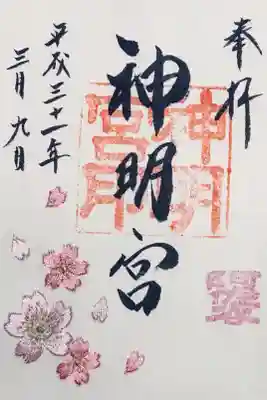 奉拝
神明宮
神明
宮印
平成三十一年
三月九日